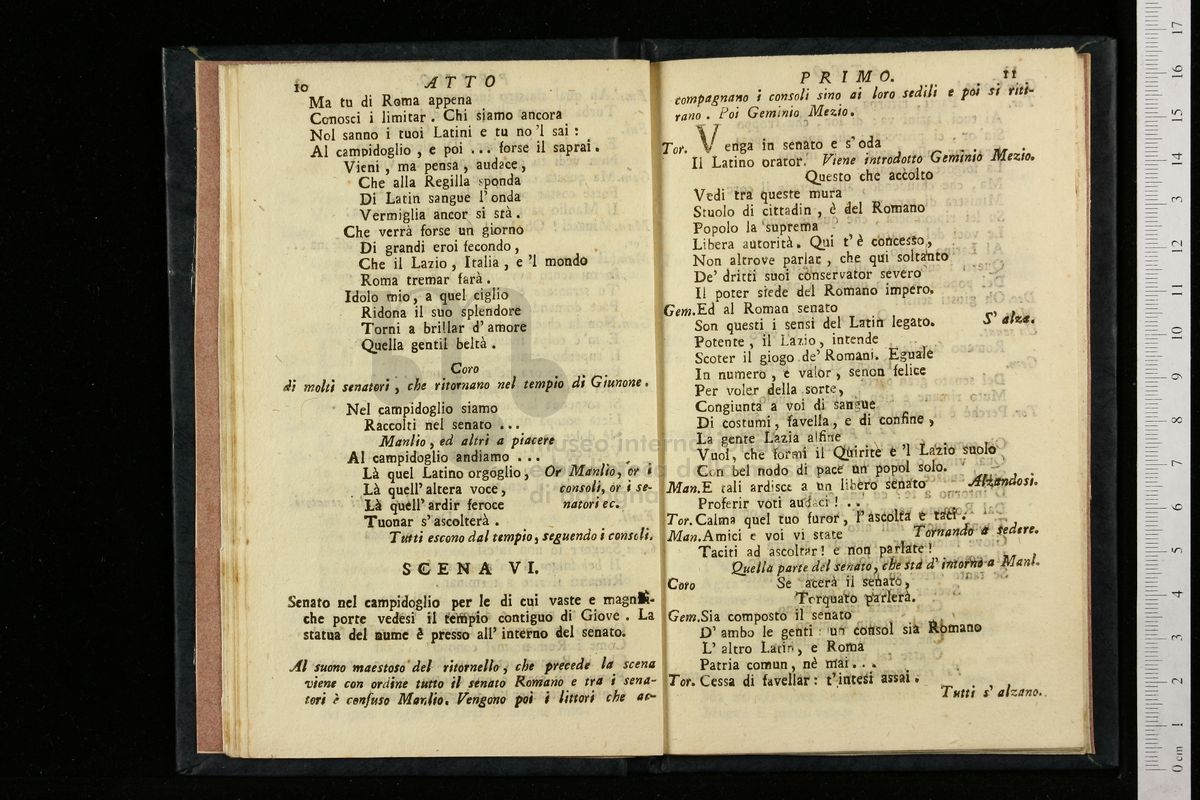 10 ATTO
Ma tu di Roma appena
Conosci i limitar. Chi siamo ancora
Nol sanno i tuoi Latini e tu no 'l sai:
Al campidoglio, e poi ... forse il saprai.
Vieni, ma pensa, audace,
Che alla Regilla sponda
Di Latin sangue l'onda
Vermiglia ancor si stà.
Che verrà forse un giorno
Di grandi eroi fecondo,
Che il Lazio, Italia, e 'l mondo
Roma tremar farà.
Idolo mio, a quel ciglio
Ridona il suo splendore
Torni a brillar d'amore
Quella gentil beltà.
Coro
di molti senatori, che ritornano nel tempio di Giunone.
Nel campidoglio siamo
Raccolti nel senato ...
Manlio, ed altri a piacere
Al campidoglio andiamo ...
Là quel Latino orgoglio, Or Manlio, or i
Là quell'altera voce, consoli, or i se-
Là quell'ardir feroce natori ec.
Tuonar s'ascolterà.
Tutti escono dal tempio, seguendo i consoli.
SCENA VI.
Senato nel campidoglio per le di cui vaste e magnifi-
che porte vedesi il tempio contiguo di Giove. La
statua del nume è presso all'interno del senato.
Al suono maestoso del ritornello, che precede la scena
viene con ordine tutto il senato Romano e tra i sena-
tori è confuso Manlio. Vengono poi i littori che ac-
PRIMO. 11
compagnano i consoli sino ai loro sedili e poi si riti-
rano. Poi Geminio Mezio.
Tor. Venga in senato e s'oda
Il Latino orator. Viene introdotto Geminio Mezio.
Questo che accolto
Vedi tra queste mura
Stuolo di cittadin, è del Romano
Popolo la suprema
Libera autorità. Qui t'è concesso,
Non altrove parlar, che qui soltanto
De' dritti suoi conservator severo
Il poter siede del Romano impero.
Gem. Ed al Roman senato
Son questi i sensi del Latin legato. S'alza.
Potente, il Lazio, intende
Scoter il giogo de' Romani. Eguale
In numero, e valor, senon felice
Per voler della sorte,
Congiunta a voi di sangue
Di costumi, favella, e di confine,
La gente Lazia alfine
Vuol, che formi il Quirite e 'l Lazio suolo
Con bel nodo di pace un popol solo.
Man. E tali ardisce a un libero senato Alzandosi.
Proferir voti audaci! ...
Tor. Calma quel tuo furor, l'ascolta e taci.
Man. Amici e voi vi state Tornando a sedere.
Taciti ad ascoltar! e non parlate!
Quella parte del senato, che stà d'intorno a Manl.
Coro Se tacerà il senato,
Torquato parlerà.
Gem. Sia composto il senato
D'ambo le genti: un consol sia Romano
L'altro Latin, e Roma
Patria comun, nè mai...
Tor. Cessa di favellar: t'intesi assai.
Tutti s'alzano.